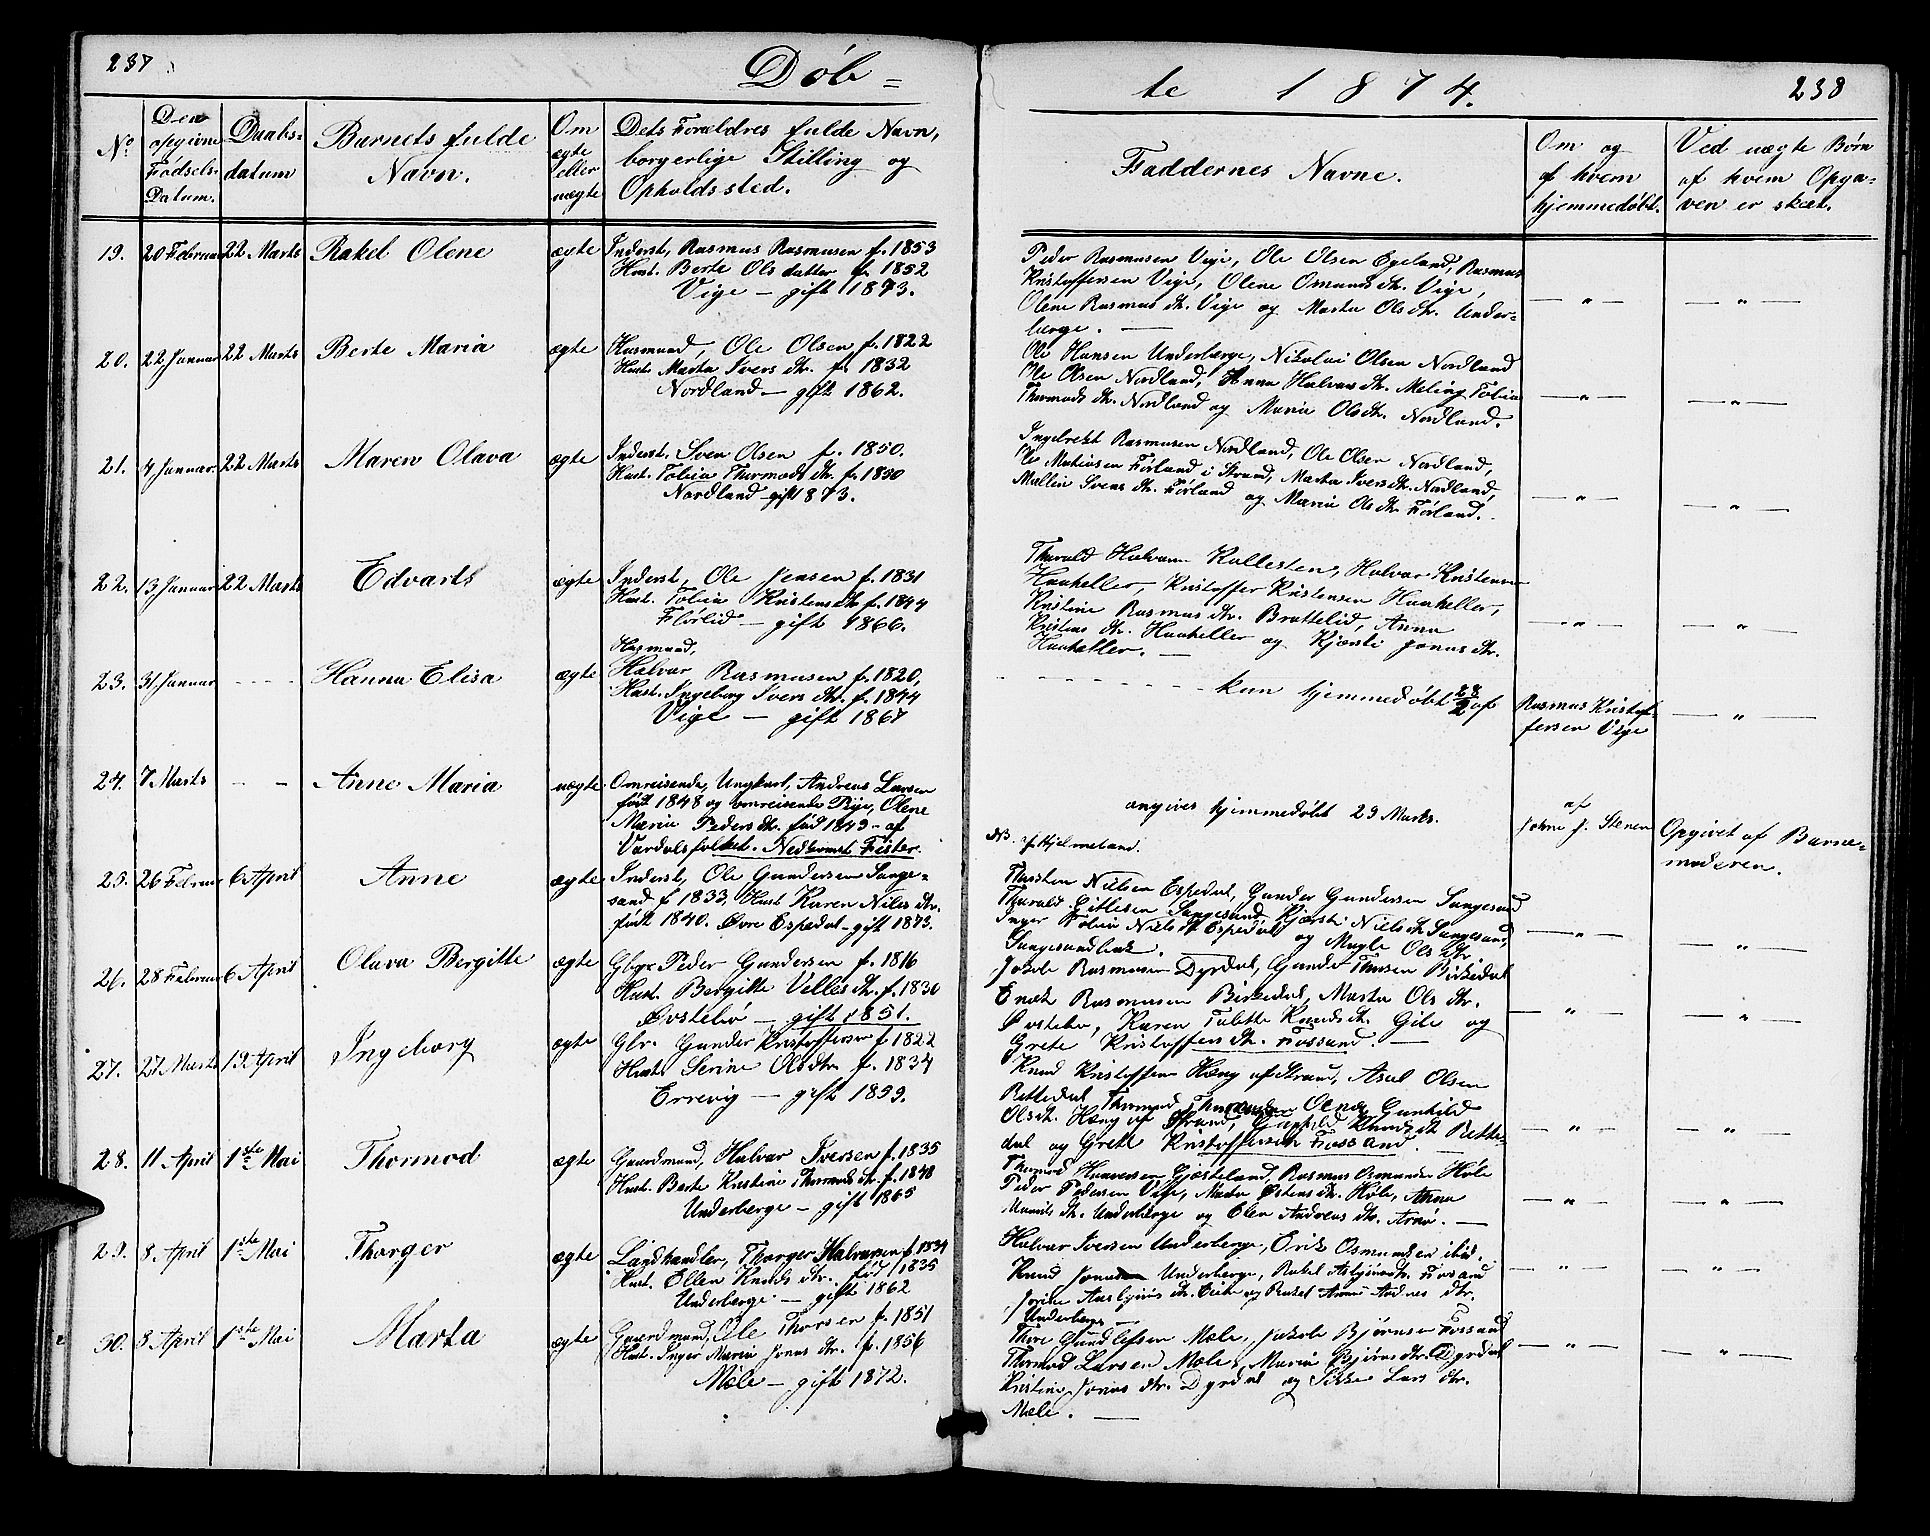 237
Døb=
te 1874.
238
No
Den opgivne Fødsels-Datum.
Daabs-datum
Barnets fulde Navn.
Om ægte eller uægte
Dets Forældres fulde Navn, borgerlige Stilling og Opholdssted.
Faddernes Navne.
Om og af hvem hjemmedøbt.
Ved uægte Børn af hvem Opga=ven er skeet.
19. 20 Februar 22 Marts Rakel Olene ægte Inderst, Rasmus Rasmussen f. 1853
Hust. Berte Olsdatter f. 1852
Vige — gift 1873.
Peder Rasmussen Vige, Ole Olsen Egeland, Rasmus
Kristoffersen Vige, Olene Omundsdtr. Vige,
Olene Rasmusdtr. Vige og Marta Olsdtr. Under-
berge. —
— " — — " —
20. 22. Januar 22 Marts Berte Maria ægte Husmand, Ole Olsen f. 1822
Hust. Marta Iversdtr. f. 1832
Nordland — gift 1862.
Ole Hansen Underberge, Nikolai Olsen Nordland
Ole Olsen Nordland, Anna Halvorsdtr. Meling Tobia
Thormodsdtr. Nordland og Maria Olsdtr. Nordland.
— " — — " —
21. 4 Januar. 22 Marts Maren Olava ægte Inderst. Sven Olsen f. 1850.
Hust. Tobia Thormodsdtr. f. 1850
Nordland — gift 1873.
Ingebrekt Rasmussen Nordland, Ole Olsen Nordland,
Ole Mathisen Førland i Strand, Marta Iversdtr. Nordland,
Mallin Svensdtr. Førland og Maria Olsdtr. Førland.
— " — — " —
22. 13. Januar 22 Marts Edvart ægte Inderst, Ole Jensen f. 1831
Hust. Tobia Kristensdtr f. 1844
Flørlid — gift 1866.
Thorald Halvorsen Kallesten, Halvor Kristensen
Haaheller, Kristoffer Kristensen Haaheller,
Kristine Rasmusdtr. Brattelid, Anna
Kristensdtr. Haaheller og Kjersti Jonasdtr.
Haaheller. —
— " — — " —
23. 31. Januar - - - Hanna Elisa ægte Husmand,
Halvor Rasmussen f. 1820,
Hust. Ingeborg Iversdtr. f. 1844
Vige — gift 1867
kun hjemmedøbt 28/2 af
Rasmus Kristof-
fersen Vige
— " —
24. 7 Marts - - Anne Maria uægte Omreisende, Ungkarl, Andreas Larsen
født 1848 og omreisende Pige, Olene
Maria Pedersdtr. født 1849 - af
Vardalsfolket. Nedkomst Fister.
angives hjemmedøbt 29 Marts.
NB. i Hjelmeland.
af
John J. Stenen
Opgivet af Barne=
moderen.
25. 26 Februar 6 April Anne ægte Inderst, Ole Gundersen Lange-
sand f 1833, Hust Karen Nilsdtr.
født 1840. Øvre Espedal — gift 1873.
Thorsten Nielsen Espedal, Gunder Gundersen Langesand
Thorald Gitlesen Langesand, Kjersti Nielsdtr Langesand,
Inger Tobia Nielsdtr Espedal og Magle Olsdtr
Langesandbak.
— " — — " —
26. 28 Februar 6 April Olava Bergitte ægte Gbgr. Peder Gundersen f. 1816
Hust. Bergitte Vellesdtr. f. 1830
Østebø — gift 1851.
Jakob Rasmussen Dyrdal, Gunder Thorsen Birkedal
Enok Rasmussen Birkedal, Marta Olsdtr.
Østebø, Karen Tabitte Knudsdtr. Eide og
Grete Kristoffersdtr. Fossand.
— " — — " —
27. 27 Marts 12 April Ingeborg ægte Gbr. Gunder Kristoffersen f 1822
Hust. Serine Olsdtr f. 1834
Errevig — gift 1859.
Knud Kristoffersen Hæng af Strand, Axel Olsen
Rettedal Thormod Olnæs Gunhild
Olsdtr. Hæng af Strand, Knudsdtr Rette-
dal og Grete Kristoffersen Fossand.
— " — — " —
28. 11 April 1ste Mai Thormod ægte Gaardmand, Halvor Iversen f. 1835
Hust. Berte Kristine Thormodsdtr. f. 1840
Underberge — gift 1865
Thormod Haaversen Gjesteland, Rasmus Osmundsen Høle
Peder Pedersen Vige, Marta Østensdtr. Høle, Anna
Underberge og Elen Andreasdtr. Arnø. —
— " — — " —
29. 8. April 1ste Mai Thorger ægte Landhandler, Thorger Halvorsen f. 1834
Hust. Ellen Knudsdtr. fød 1835
Underberge. — gift 1862
Halvor Iversen Underberge, Erik Osmundsen ibid.
Knud Jonassen Underberge, Rakel Asbjørnsdtr. Fossand
Jorine Asbjørnsdtr. Eide og Rakel Andreasdtr.
Underberge —
— " — — " —
30. 8 April 1ste Mai Marta ægte Gaardmand, Ole Thorsen f. 1851
Hust. Inger Maria Jonasdtr. f. 1856
Mæle — gift 1872.
Thore Gundlefsen Mæle, Jakob Bjørnsen Fossand
Thormod Larsen Mæle, Maria Bjørnsdtr. Dyrdal
Kristine Jonasdtr. Dyrdal og Sikke Larsdtr.
Mæle. —
— " — — " —